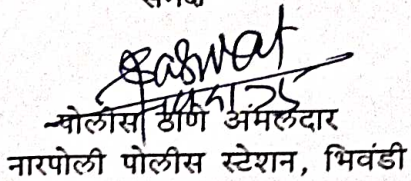 समक्ष
पोलीस ठाणे अंमलदार
नारपोली पोलीस स्टेशन, भिवंडी